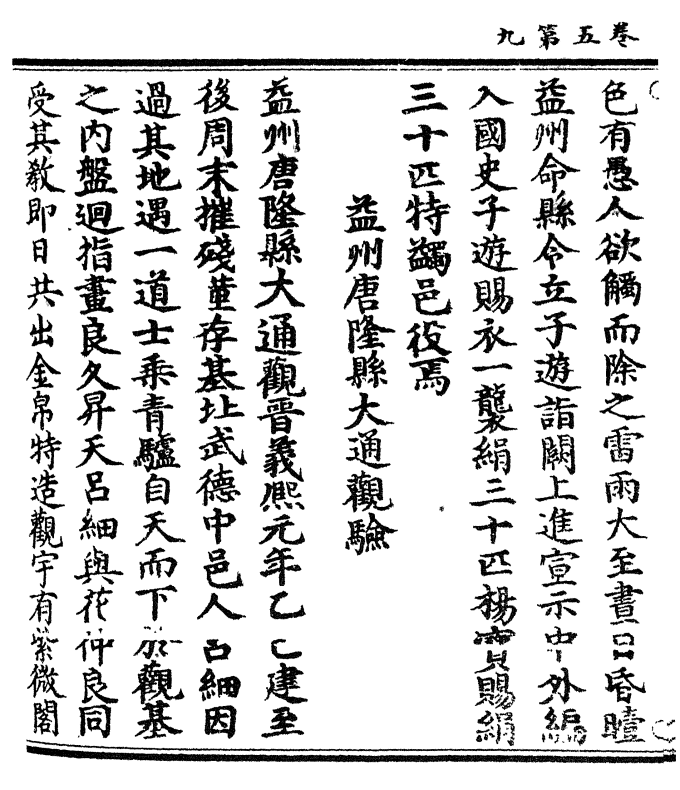 卷五第九
色有愚人欲觸而除之雷雨大至晝日昏曀
益州命縣令立子遊詣闕上進宣示中外編
入國史子遊賜衣一襲絹三十匹楊寶賜絹
三十匹特蠲邑役焉
益州唐隆縣大通觀驗
益州唐隆縣大通觀晉義熙元年乙巳建至
後周末摧殘菫存基址武德中邑人呂細因
過其地遇一道士乘青驢自天而下於觀基
之內盤迴指畫良久昇天呂細與花仲良同
受其教即日共出金帛特造觀宇有紫微閣